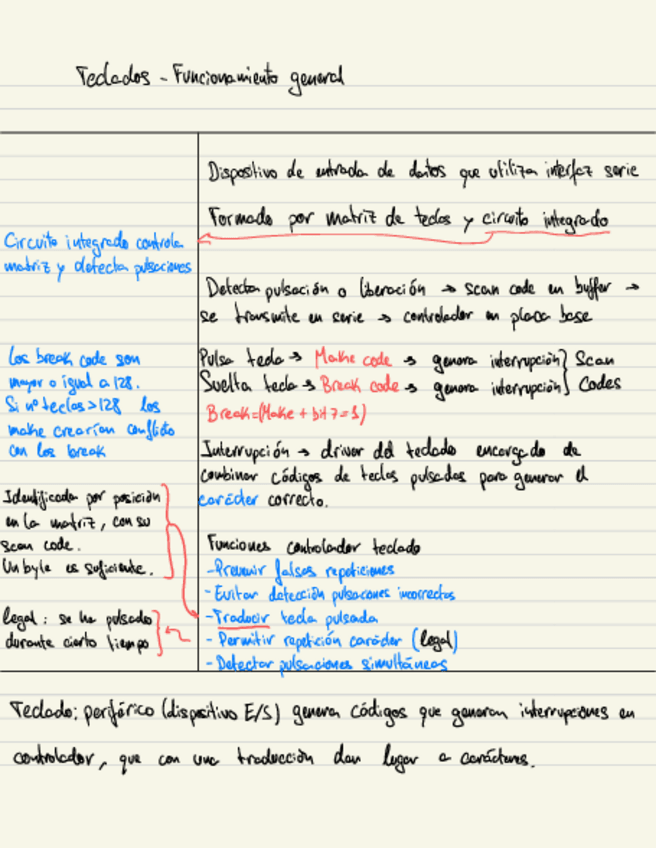 Teclados - Funcionamiento general
Dispositivo de entrada de datos que utiliza interfaz serie
Formado por matriz de teclas y circuito integrado
Circuito integrado controla
matriz y detecta pulsaciones
Detecta pulsación o liberación → scan code en buffer →
se transmite en serie → controlador en placa base
Los break code son
mayor o igual a 128.
Si nº teclas > 128 los
make crearían conflicto
con los break
Pulsa tecla → Make code → genera interrupción } Scan
Suelta tecla → Break code → genera interrupción } Codes
Break=(Make + bit 7=1)
Interrupción → driver del teclado encargado de
combinar códigos de teclas pulsadas para generar el
carácter correcto.
Identificada por posición
en la matriz, con su
scan code.
Un byte es suficiente.
legal: se ha pulsado
durante cierto tiempo
Funciones controlador teclado
- Prevenir falsas repeticiones
- Evitar detección pulsaciones incorrectas
- Traducir tecla pulsada
- Permitir repetición carácter (legal)
- Detectar pulsaciones simultáneas
Teclado: periférico (dispositivo E/S) genera códigos que generan interrupciones en
controlador, que con una traducción dan lugar a carácteres.